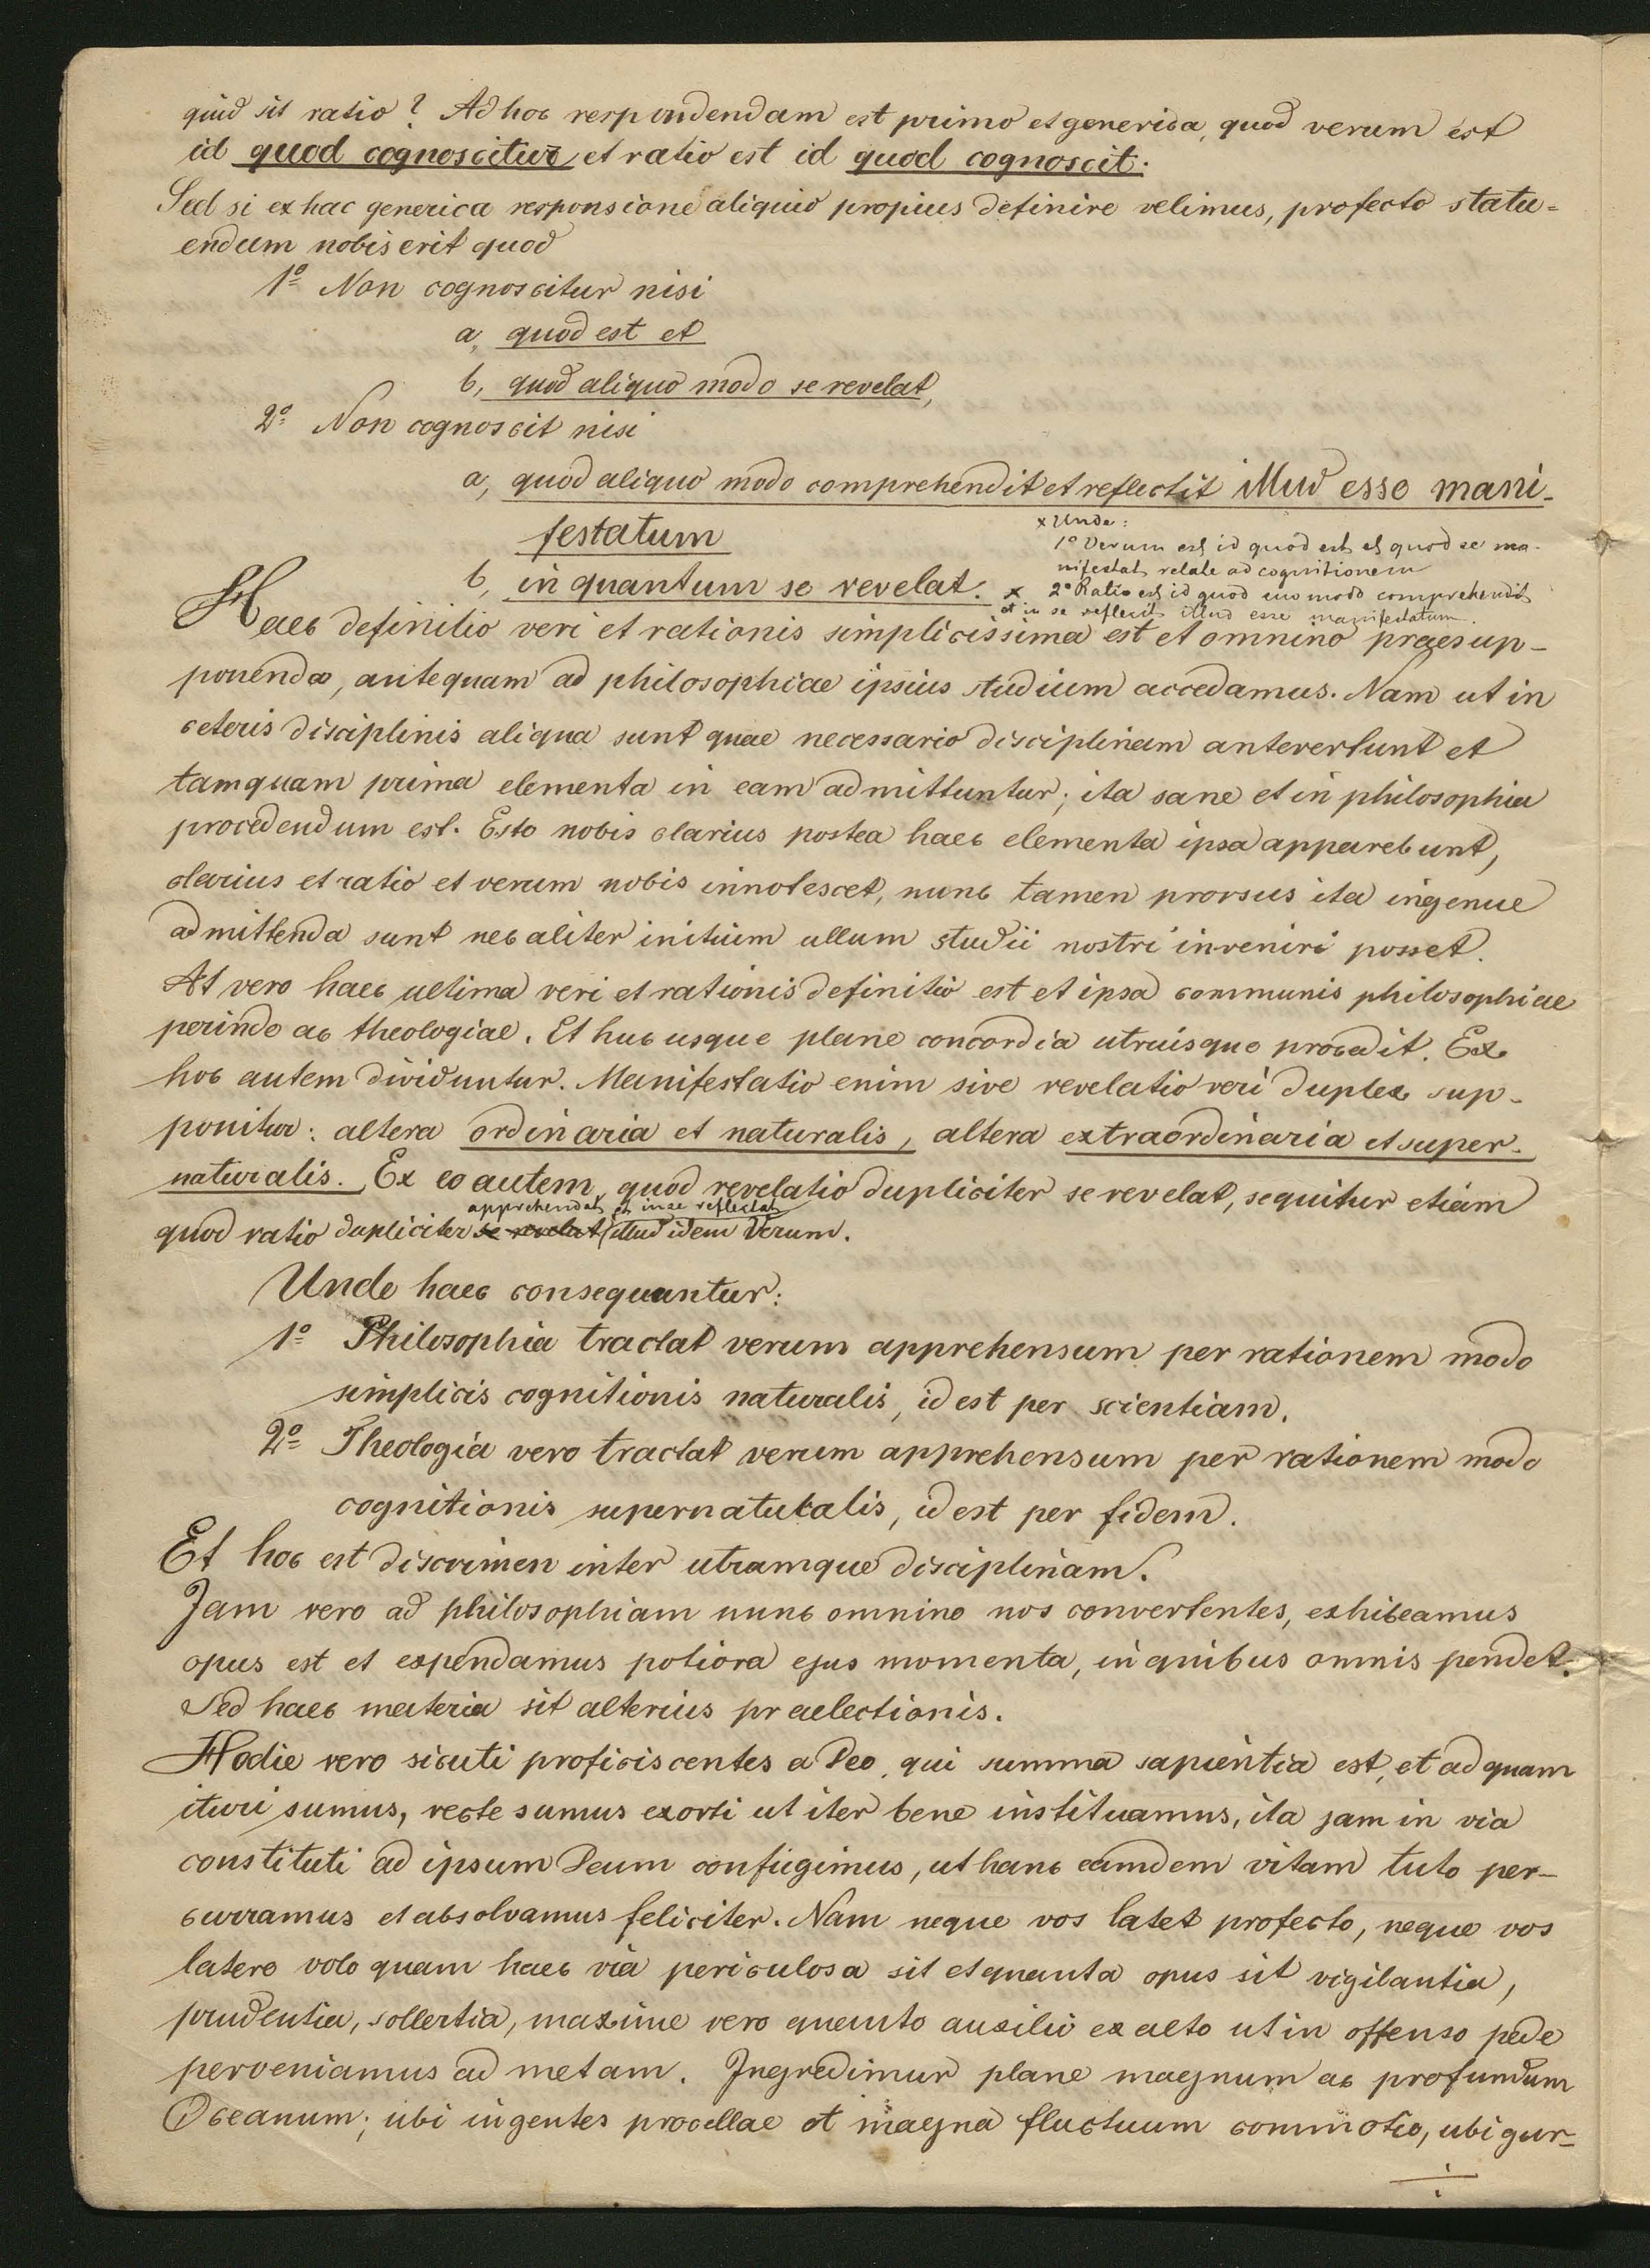 quid sit ratio? Ad hoc respondendam est primo et generica, quod verum est
id quod cognoscitur et ratio est id quod cognoscit.
Sed si ex hac generica responsione aliquid propius definire velimus, profecto statu=
endum nobis erit quod
1º Non cognoscitur nisi
a, quod est et
b, quod aliquo modo se revelat,
2º Non cognoscit nisi
a, quod aliquo modo comprehendit et reflectit illud esse mani-
festatum
b, in quantum se revelat. x
x Unde:
1º Verum est id quod est et quod se ma-
nifestat relate ad cognitionem
2º Ratio est id quod suo modo comprehendit
et in se reflectit illud esse manifestatum.
Haec definitio veri et rationis simplicissima est et omnino praesup-
ponenda, antequam ad philosophiae ipsius studium accedamus. Nam ut in
ceteris disciplinis aliqua sunt quae necessario disciplinam antevertunt et
tamquam prima elementa in eam admittuntur; ita sane et in philosophia
procedendum est. Esto nobis clarius postea haec elementa ipsa apparebunt,
clarius et ratio et verum nobis innotescet, nunc tamen prorsus ita ingenue
admittenda sunt nec aliter initium ullum studii nostri inveniri posset.
At vero haec ultima veri et rationis definitio est et ipsa communis philosophiae
perinde ac theologiae. Et huc usque plane concordia utriusque procedit. Ex
hoc autem dividuntur. Manifestatio enim sive revelatio veri duplex sup-
ponitur: altera ordinaria et naturalis, altera extraordinaria et super-
naturalis. Ex eo autem, quod revelatio dupliciter se revelat, sequitur etiam
apprehendat et in se reflectat
quod ratio dupliciter se revelat illud idem Verum.
Unde haec consequuntur:
1º Philosophia tractat verum apprehensum per rationem modo
simplicis cognitionis naturalis, id est per scientiam.
2º Theologia vero tractat verum apprehensum per rationem modo
cognitionis supernaturalis, id est per fidem.
Et hoc est discrimen inter utramque disciplinam.
Jam vero ad philosophiam nunc omnino nos convertentes, exhibeamus
opus est et expendamus potiora ejus momenta, in quibus omnis pendet.
Sed haec materia sit alterius praelectionis.
Hodie vero sicuti proficiscentes a Deo, qui summa sapientia est, et ad quam
ituri sumus, recte sumus exorti ut iter bene instituamus, ita jam in via
constituti ad ipsum Deum confugimus, ut hanc eamdem vitam tuto per-
curramus et absolvamus feliciter. Nam neque vos latet profecto, neque vos
latere volo quam haec via periculosa sit et quanta opus sit vigilantia,
prudentia, sollertia, maxime vero quanto auxilii ex alto ut in offenso pede
perveniamus ad metam. Ingredimur plane magnum ac profundum
Oceanum; ubi ingentes procellae et magna fluctuum commotio, ubi gur-